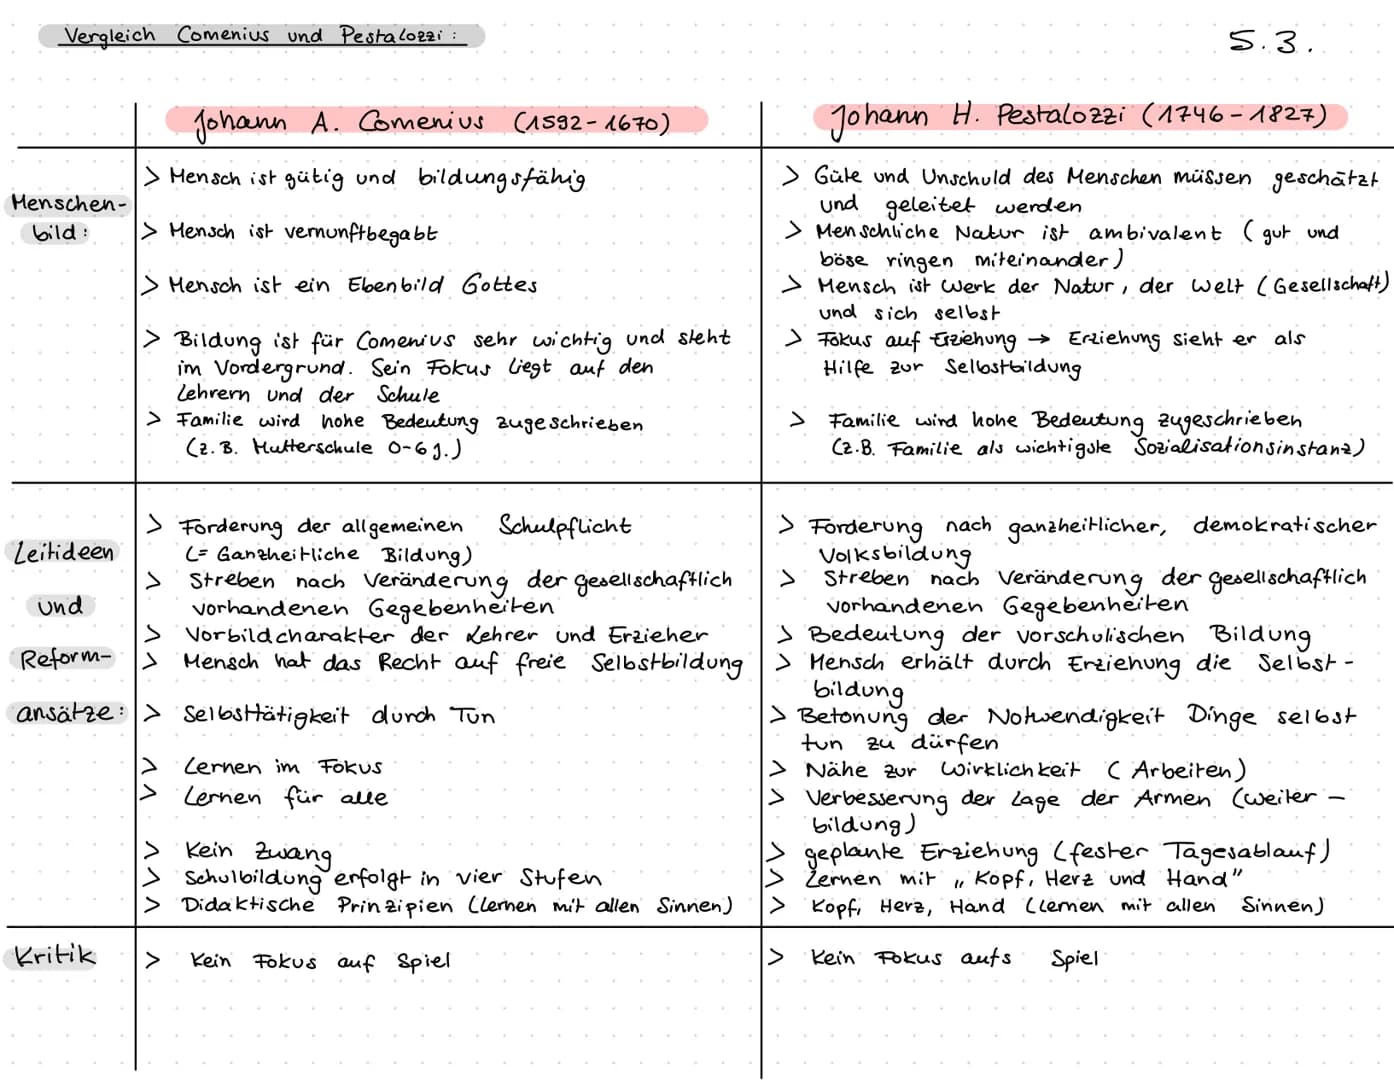 Vergleich Comenius und Pestalozzi:
5.3.
Johann A. Comenius (1592-1670)
Johann H. Pestalozzi (1746-1827)
Menschen-
bild:
> Mensch ist gütig und bildungsfähig
> Mensch ist vernunftbegabt
> Mensch ist ein Ebenbild Gottes
> Bildung ist für Comenius sehr wichtig und steht
im Vordergrund. Sein Fokus liegt auf den
Lehrern und der Schule
> Familie wird hohe Bedeutung zugeschrieben
(z.B. Mutterschule 0-6 J.)
> Güte und Unschuld des Menschen müssen geschätzt
und geleitet werden
> Menschliche Natur ist ambivalent (gut und
böse ringen miteinander)
> Mensch ist Werk der Natur, der Welt (Gesellschaft)
und sich selbst
> Fokus auf Erziehung → Erziehung sieht er als
Hilfe zur Selbstbildung
> Familie wird hohe Bedeutung zugeschrieben
(z.B. Familie als wichtigste Sozialisationsinstanz)
Leitideen
und
Reform-
ansätze:
> Forderung der allgemeinen Schulpflicht
(= Ganzheitliche Bildung)
> Streben nach Veränderung der gesellschaftlich
vorhandenen Gegebenheiten
> Vorbildcharakter der Lehrer und Erzieher
> Mensch hat das Recht auf freie Selbstbildung
> Selbsttätigkeit durch Tun
> Lernen im Fokus
> Lernen für alle
> Kein Zwang
> Schulbildung erfolgt in vier Stufen
> Didaktische Prinzipien (Lernen mit allen Sinnen)
> Forderung nach ganzheitlicher, demokratischer
Volksbildung
> Streben nach Veränderung der gesellschaftlich
vorhandenen Gegebenheiten
> Bedeutung der vorschulischen Bildung
> Mensch erhält durch Erziehung die Selbst-
bildung
> Betonung der Notwendigkeit Dinge selbst
tun zu dürfen
> Nähe zur Wirklichkeit (Arbeiten)
> Verbesserung der Lage der Armen (Weiter-
bildung)
> geplante Erziehung (fester Tagesablauf)
> Lernen mit „Kopf, Herz und Hand"
> Kopf, Herz, Hand (Lernen mit allen Sinnen)
Kritik
> Kein Fokus auf Spiel
> Kein Fokus aufs Spiel